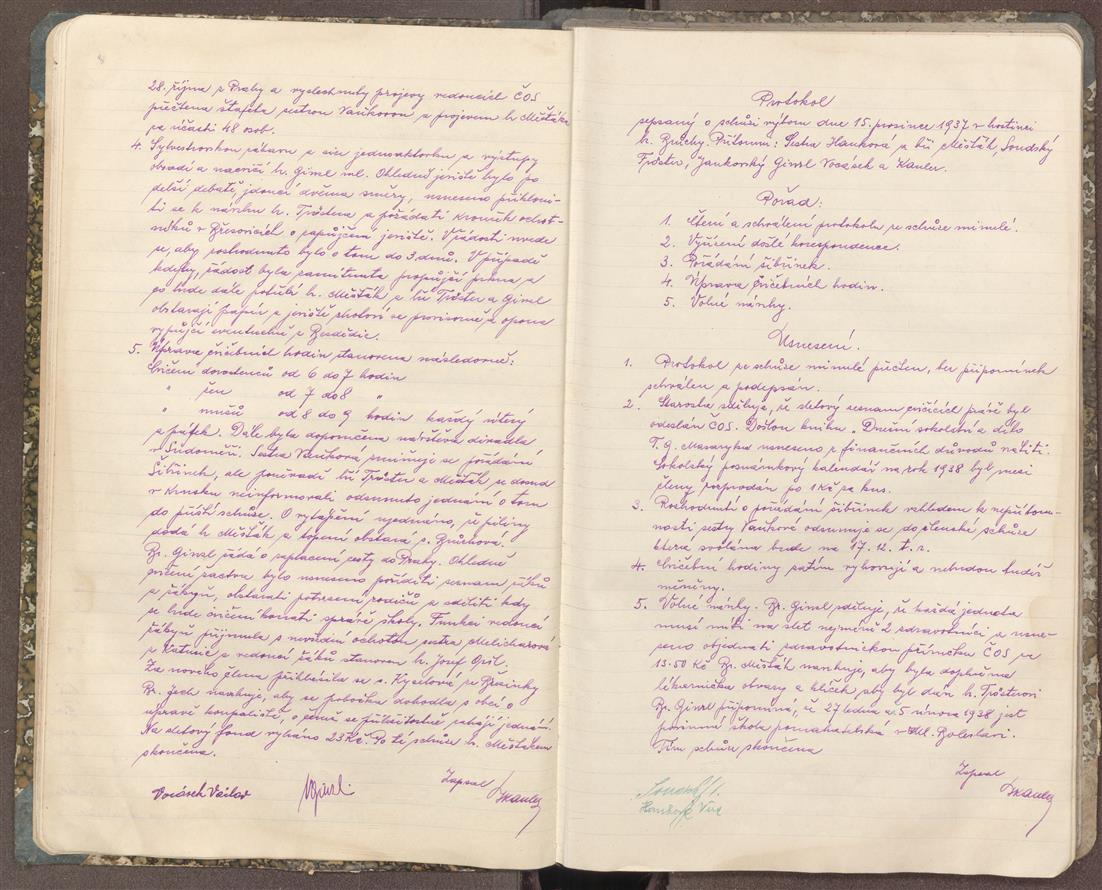 28. října z Prahy a vyslechnuty projevy vedoucích ČOS
přečtena štafeta sestrou Vaňkovou s projevem br. Měšťák
za účasti 48 osob.
4. Sylvestrovskou zábavu a sice jednoaktovku a výstupy
obvodí a nacvičí br. Ginzl ml. Ohledně jeviště bylo po
delší debatě, jdoucí dvěma směry, usneseno přikloni-
ti se k návrhu br. Tróstra a požádati kroužek ochot-
níků v Březovicích o zapůjčení jeviště. V žádosti uvede
se, aby rozhodnuto bylo o tom do 3 dnů. V případě
kdyby, žádost byla zamítnuta propůjčí prkna a
co bude dále potřebí br. Měšťák a bří Tróstr a Ginzl
obstarají papír a jeviště zhotoví se provisorně a opona
vypůjčí eventuelně z Bezdědic.
5. Úprava cvičebních hodin stanovena následovně:
Cvičení dorostenců od 6 do 7 hodin
" žen od 7 do 8 "
" mužů od 8 do 9 hodin každý úterý
a pátek. Dále byla doporučena návštěva divadla
v Sudoměři. Sestra Vaňková zmiňuje se pořádání
Šibřinek, ale poněvadž bří Tróstr a Měšťák se dosud
v Krnsku neinformovali odsunuto jednání o tom
do příští schůze. O vytápění ujednáno, že piliny
dodá br. Měšťák a topení obstará s. Bruchová.
Br. Ginzl žádá o zaplacení cesty do Prahy. Ohledně
cvičení žactva bylo usneseno poříditi seznam žáků
a žákyň, obstarati potvrzení rodičů a sděliti kdy
se bude cvičení konati správě školy. Funkci vedoucí
žákyň přijmula s nevšední ochotou sestra Melicharová
z Katusic a vedoucí žáků stanoven br. Josef Opčl.
Za nového člena přihlásila se s. Kyselová ze Březinky
Br. Zech navrhuje, aby se pobočka dohodla s obcí o
úpravě koupaliště, o čemž se příležitostně zahájí jednání.
Na sletový fond vybráno 23 Kč. Po té schůze br. Měšťákem
skončena.
Zapsal
Vocásek Václav VGinzl JKaule
Protokol
sepsaný o schůzi výboru dne 15. prosince 1937 v hostinci
br. Bruchy. Přítomni: Sestra Hanková a bří Měšťák, Londský
Tróstr, Jankovský Ginzl Vocásek a Kaule.
Pořad:
1. Čtení a schválení protokolu ze schůze minulé.
2. Vyřízení došlé korespondence.
3. Pořádání šibřinek.
4. Úprava cvičebních hodin.
5. Volné návrhy.
Usnesení.
1. Protokol ze schůze minulé přečten, bez připomínek
schválen a podepsán.
2. Starosta sděluje, že sletový seznam cvičících právě byl
odeslán ČOS. Došlou knihu. Dnešní sokolství a dílo
T. G. Masaryka usneseno z finančních důvodů vrátiti.
Sokolský poznámkový kalendář na rok 1938 byl mezi
členy rozprodán po 1 Kč za kus.
3. Rozhodnutí o pořádání šibřinek vzhledem k nepřítom-
nosti sestry Vaňkové odsunuje se do členské schůze
která svolána bude na 17. 12. t. r.
4. Cvičební hodiny zatím vyhovují a nebudou tudíž
měněny.
5. Volné návrhy. Br. Ginzl sděluje, že každá jednota
musí míti na slet nejméně 2 zdravotníci a usne-
seno objednati zdravotnickou příručku ČOS za
13·50 Kč Br. Měšťák navrhuje, aby byla doplněna
lékárnička obvazy a klíček aby byl dán br. Tróstrovi
Br. Ginzl připomíná, že 27 ledna a 5 února 1938 jest
povinná škola pomahatelská v Ml. Boleslavi.
Tím schůze skončena
Zapsal
JKaule